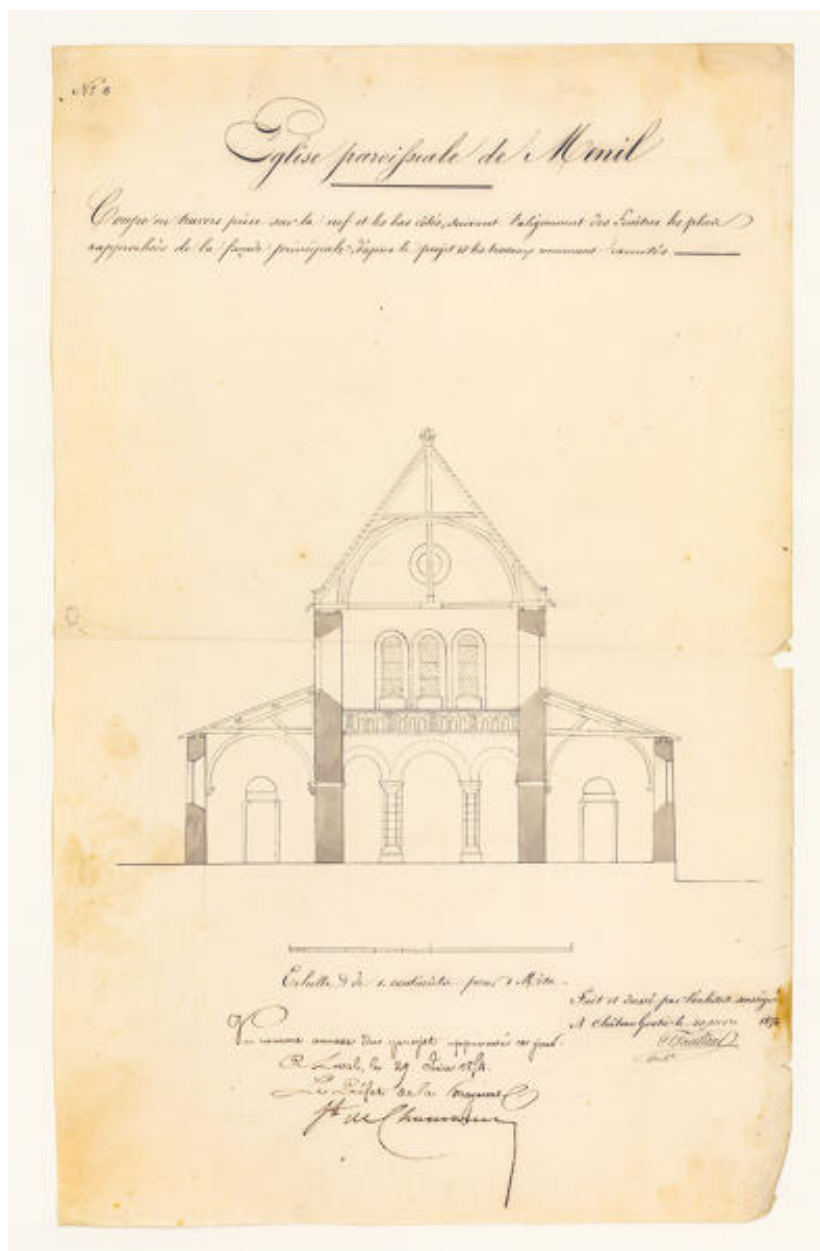 Eglise paroissiale de Menil
Coupe en travers prise sur la nef et les bas côtés, suivant l'alignement des fenêtres les plus
rapprochées de la façade principale, d'après le projet et les travaux
Echelle de 1 centimètre pour 1 Mètre.
Fait et dressé par l'architecte soussigné
A Château-Gontier le
Vu comme annexe du projet approuvé ce jour.
Laval, le 29 Juin
Le Préfet de la Mayenne